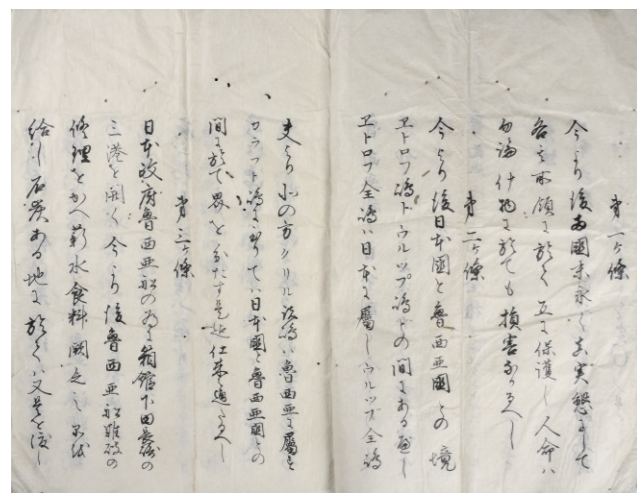 第一ケ條
今より後両國末永く真実懇にして
各其所領に於て互に保護し人命は
勿論什物に於ても損害なかるへし
第二ケ條
今より後日本國と魯西亜國との境
ヱトロフ嶋とウルップ嶋との間にあるへし
ヱトロフ全嶋ハ日本に属しウルップ全嶋
夫より北の方クリル諸嶋ハ魯西亜に属す
カラフト嶋に至りてハ日本國と魯西亜國との
間に於て界を分たす是迄仕来之通たるへし
第三ケ條
日本政府魯西亜船の為に箱館下田長崎の
三港を開く今より後魯西亜船難破の
修理を加へ薪水食料缺乏之品を
給し石炭ある地に於てハ又是を渡し